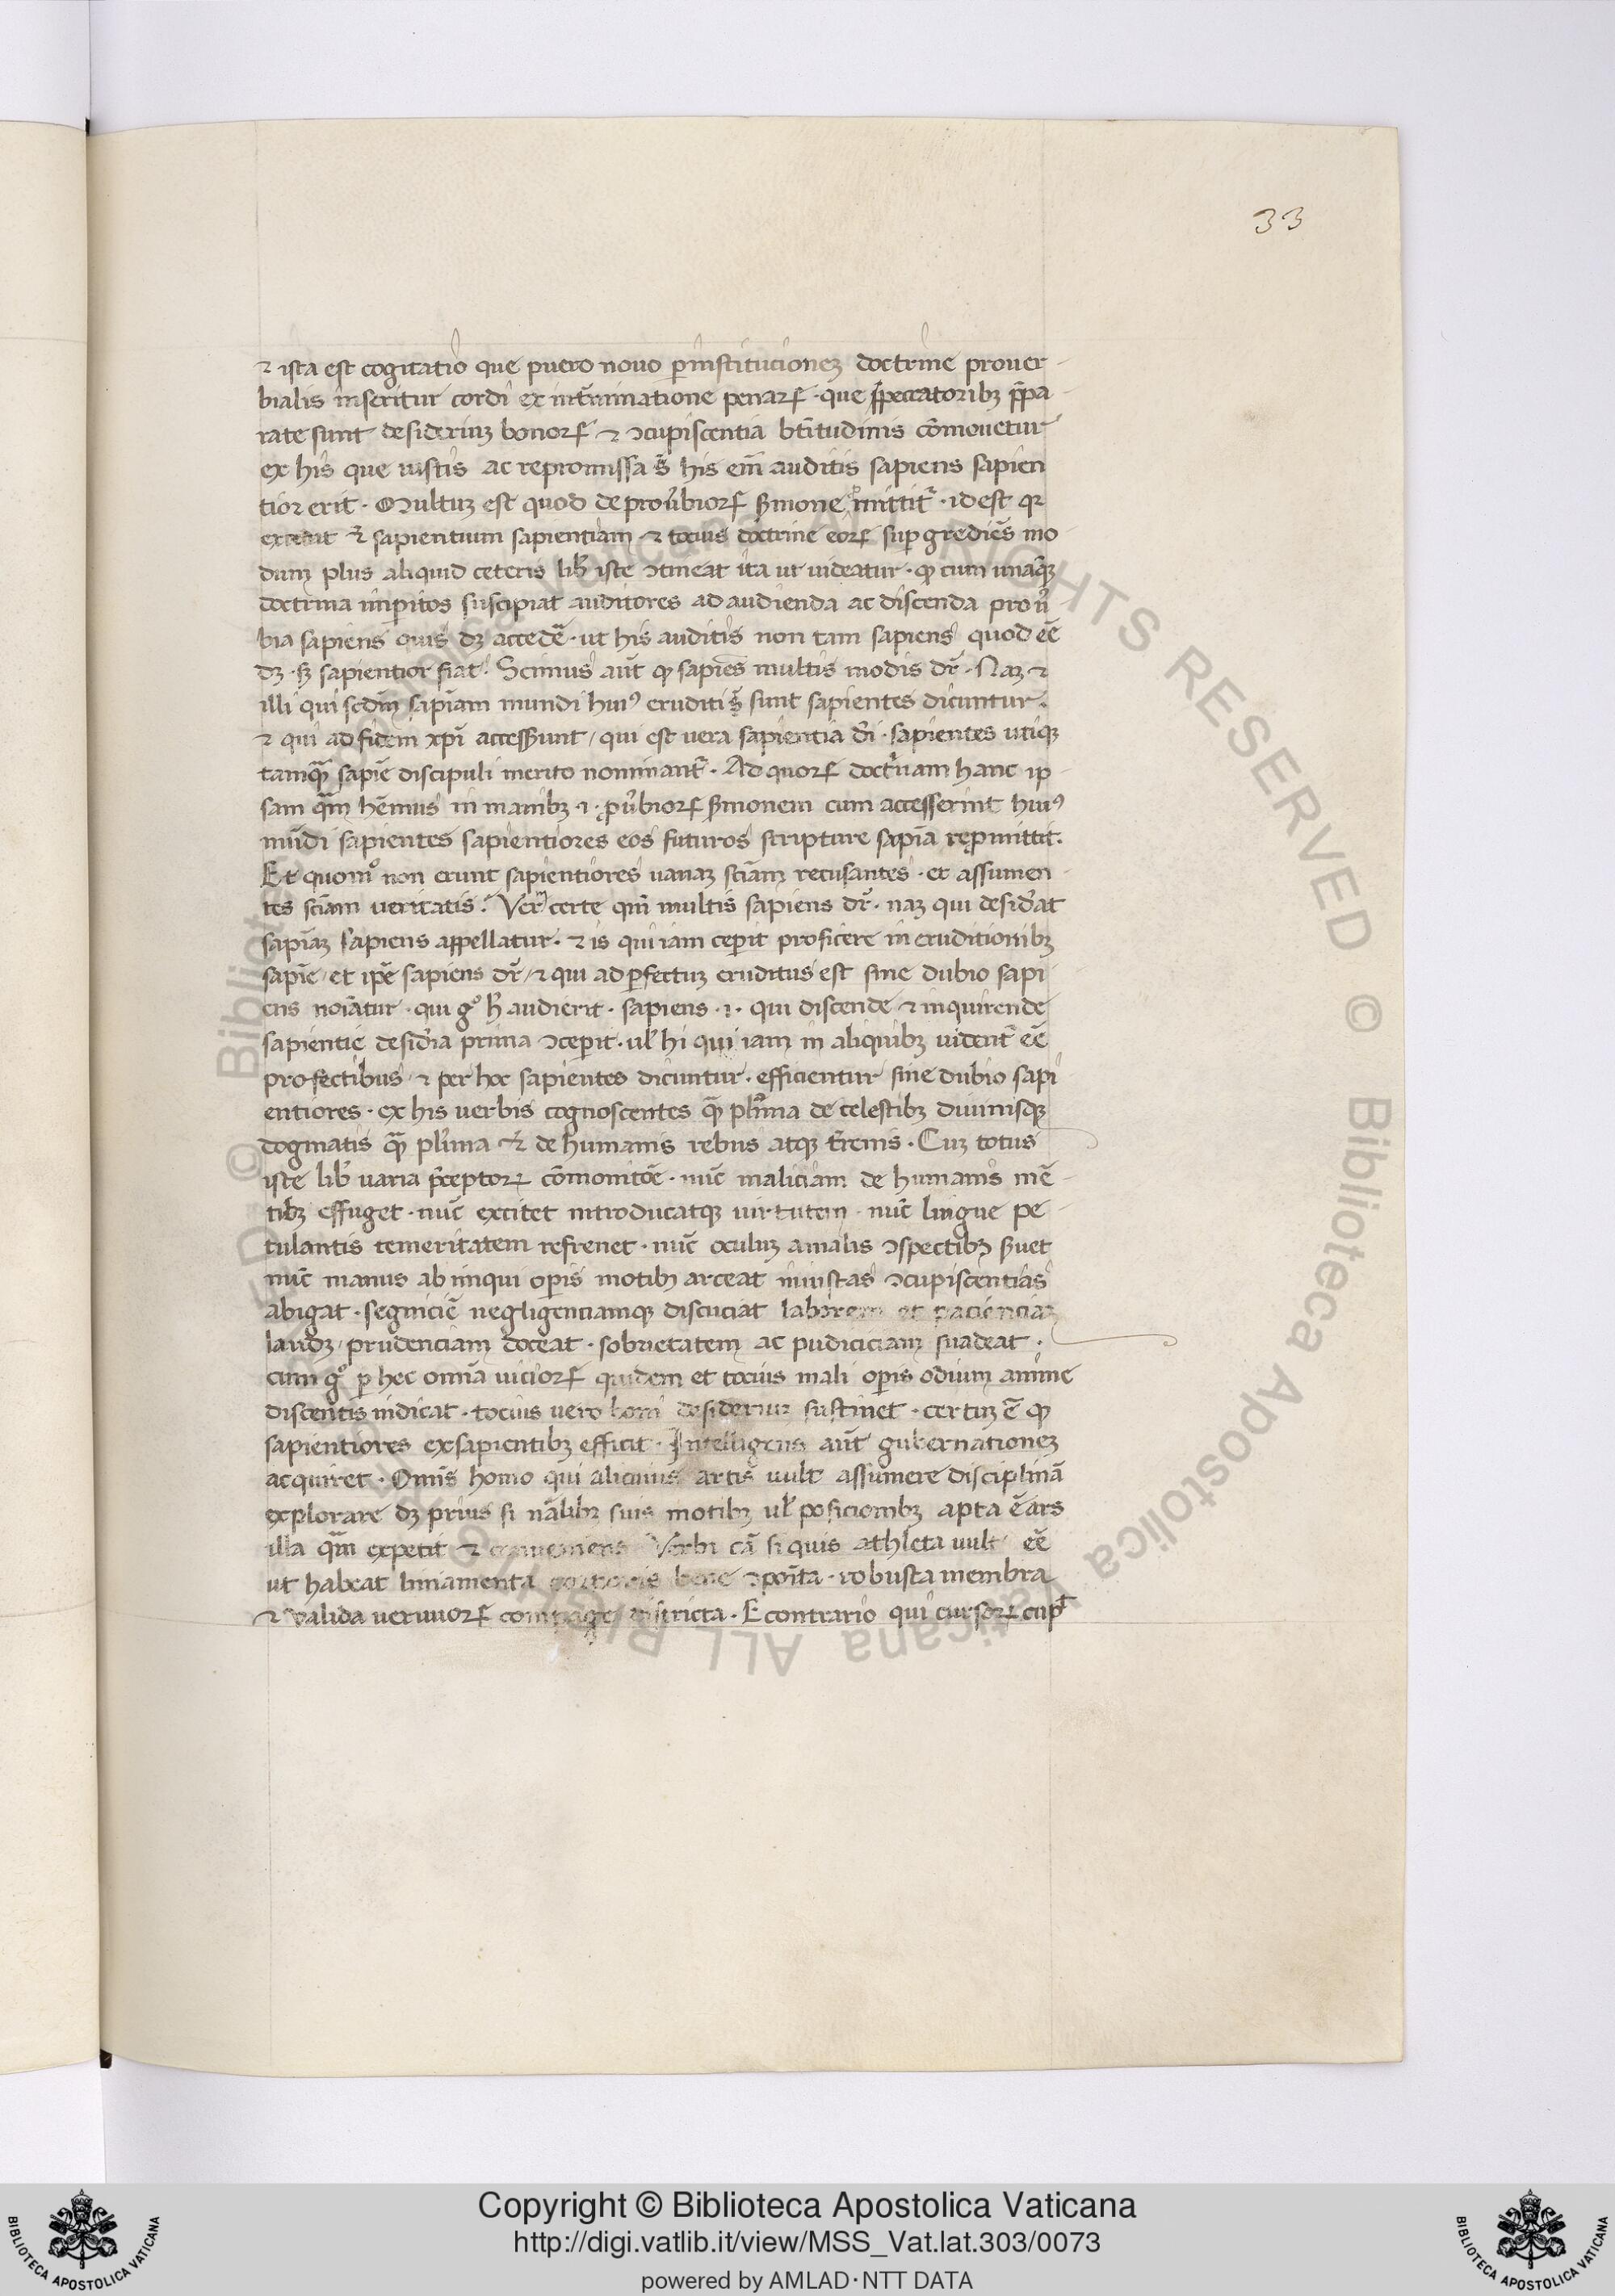 33
⁊ ista est cogitatio que puero nouo ꝑ institucionem doctrine prouer-
bialis inseritur cordi ex int̃minatione penarꝝ · que peccatoribꝫ p̃pa-
rate sunt desiderium bonorꝝ ⁊ ↄcupiscentia bt̃itudinis cõmouetur
ex his que iustis ac repromissa s̃ his em̃ auditis sapiens sapien
tior erit · Multum est quod de prou̾biorꝝ ẜmone ꝓmittit᷑ · id est qꝛ
sapientium sapientiam ⁊ tocius doctrine eorꝝ suꝑgrediẽs mo
dum plus aliquid ceteris lib̾ iste ↄtineat ita ut uideatur · ꝙ cum unaq̃qꝫ
doctrina imꝑitos suscipiat auditores ad audienda ac discenda prou̾
bia sapiens quis dꝫ accedẽ · ut his auditis non tam sapiens quod eẽ
dꝫ · sꝫ sapientior fiat? Scimus aut̃ ꝙ sapiẽs multis modis dr̃ · Nam ⁊
illi qui scdm̃ sapiam̃ mundi huiꝰ eruditi sunt sapientes dicuntur ·
⁊ qui ad fidem xp̃i accesserunt / qui est uera sapientia dei · sapientes utiqꝫ
tamqᷓ sapiẽ discipuli merito nominant᷑ · Ad quorꝝ doctrinam hanc ip-
sam qᷓm hẽmus in manibꝫ · i · ꝓu̾biorꝝ ẜmonem cum accesserint huiꝰ
mũdi sapientes sapientiores eos futuros scripture sapiã reꝓmittit.
Et quomͦ non erunt sapientiores uanam sciãm recusantes · et assumen-
tes sciãm ueritatis? Verᵐ certe qm̃ multis sapiens dr̃ · nam qui desid̾at
sapiãm sapiens appellatur · ⁊ is qui iam ceꝑit proficere in eruditionibꝫ
sapiẽ / et ip̃e sapiens dr̃ / ⁊ qui ad ꝑfectum eruditus est sine dubio sapi
ens noiãtur · qui gͦ h̾ audierit · sapiens · i · qui discende ⁊ inquirende
sapientie desid̾ia prima ↄceꝑit · ul̾ hi qui iam in aliquibꝫ uident᷑ eẽ
profectibus ⁊ per hec sapientes dicuntur · efficientur sine dubio sapi
entiores · ex his uerbis cognoscentes qᷓ plu̾ima de celestibꝫ diuinisqꝫ
dogmatis qᷓ plu̾ima ⁊ de humanis rebus atqꝫ t̾renis · Cum totus
iste lib̾ uaria p̃ceptorꝝ cõmonitõe · nũc maliciam de humanis mẽ-
tibꝫ effuget · nũc excitet introducatqꝫ uirtutem · nũc lingue pe-
tulantis temeritatem refrenet · nũc oculum a malis ↄspectibꝫ ẜuet
nũc manus ab iniqui oꝑis motibꝫ arceat iniustas ↄcupiscentias
abigat · segniciẽ negligenciamqꝫ discuciat laborem et pacienciam
laudꝫ / prudenciam doceat · sobrietatem ac pudiciciam suadeat ·
cum gͦ ꝑ hec omnia uiciorꝝ quidem et tocius mali oꝑis odium anime
discentis indicat · tocius uero boni desiderium sustinet · certum ẽ ꝙ
sapientiores ex sapientibꝫ efficit · Intelligens aut̃ gubernationem
acquiret · Omĩs homo qui alicuius artis uult assumere disciplinã
explorare dꝫ prius si nãlibꝫ suis motibꝫ ul̾ posicionibꝫ apta ẽ ars
illa qᷓm expetit ⁊ conueniens Verbi cã si quis athleta uult eẽ
ut habeat liniamenta corporis bene ↄpoĩta · robusta membra
⁊ ualida neruuorꝝ compage districta · E contrario qui cursorꝝ cup̾t
Copyright © Biblioteca Apostolica Vaticana
http://digi.vatlib.it/view/MSS_Vat.lat.303/0073
powered by AMLAD · NTT DATA